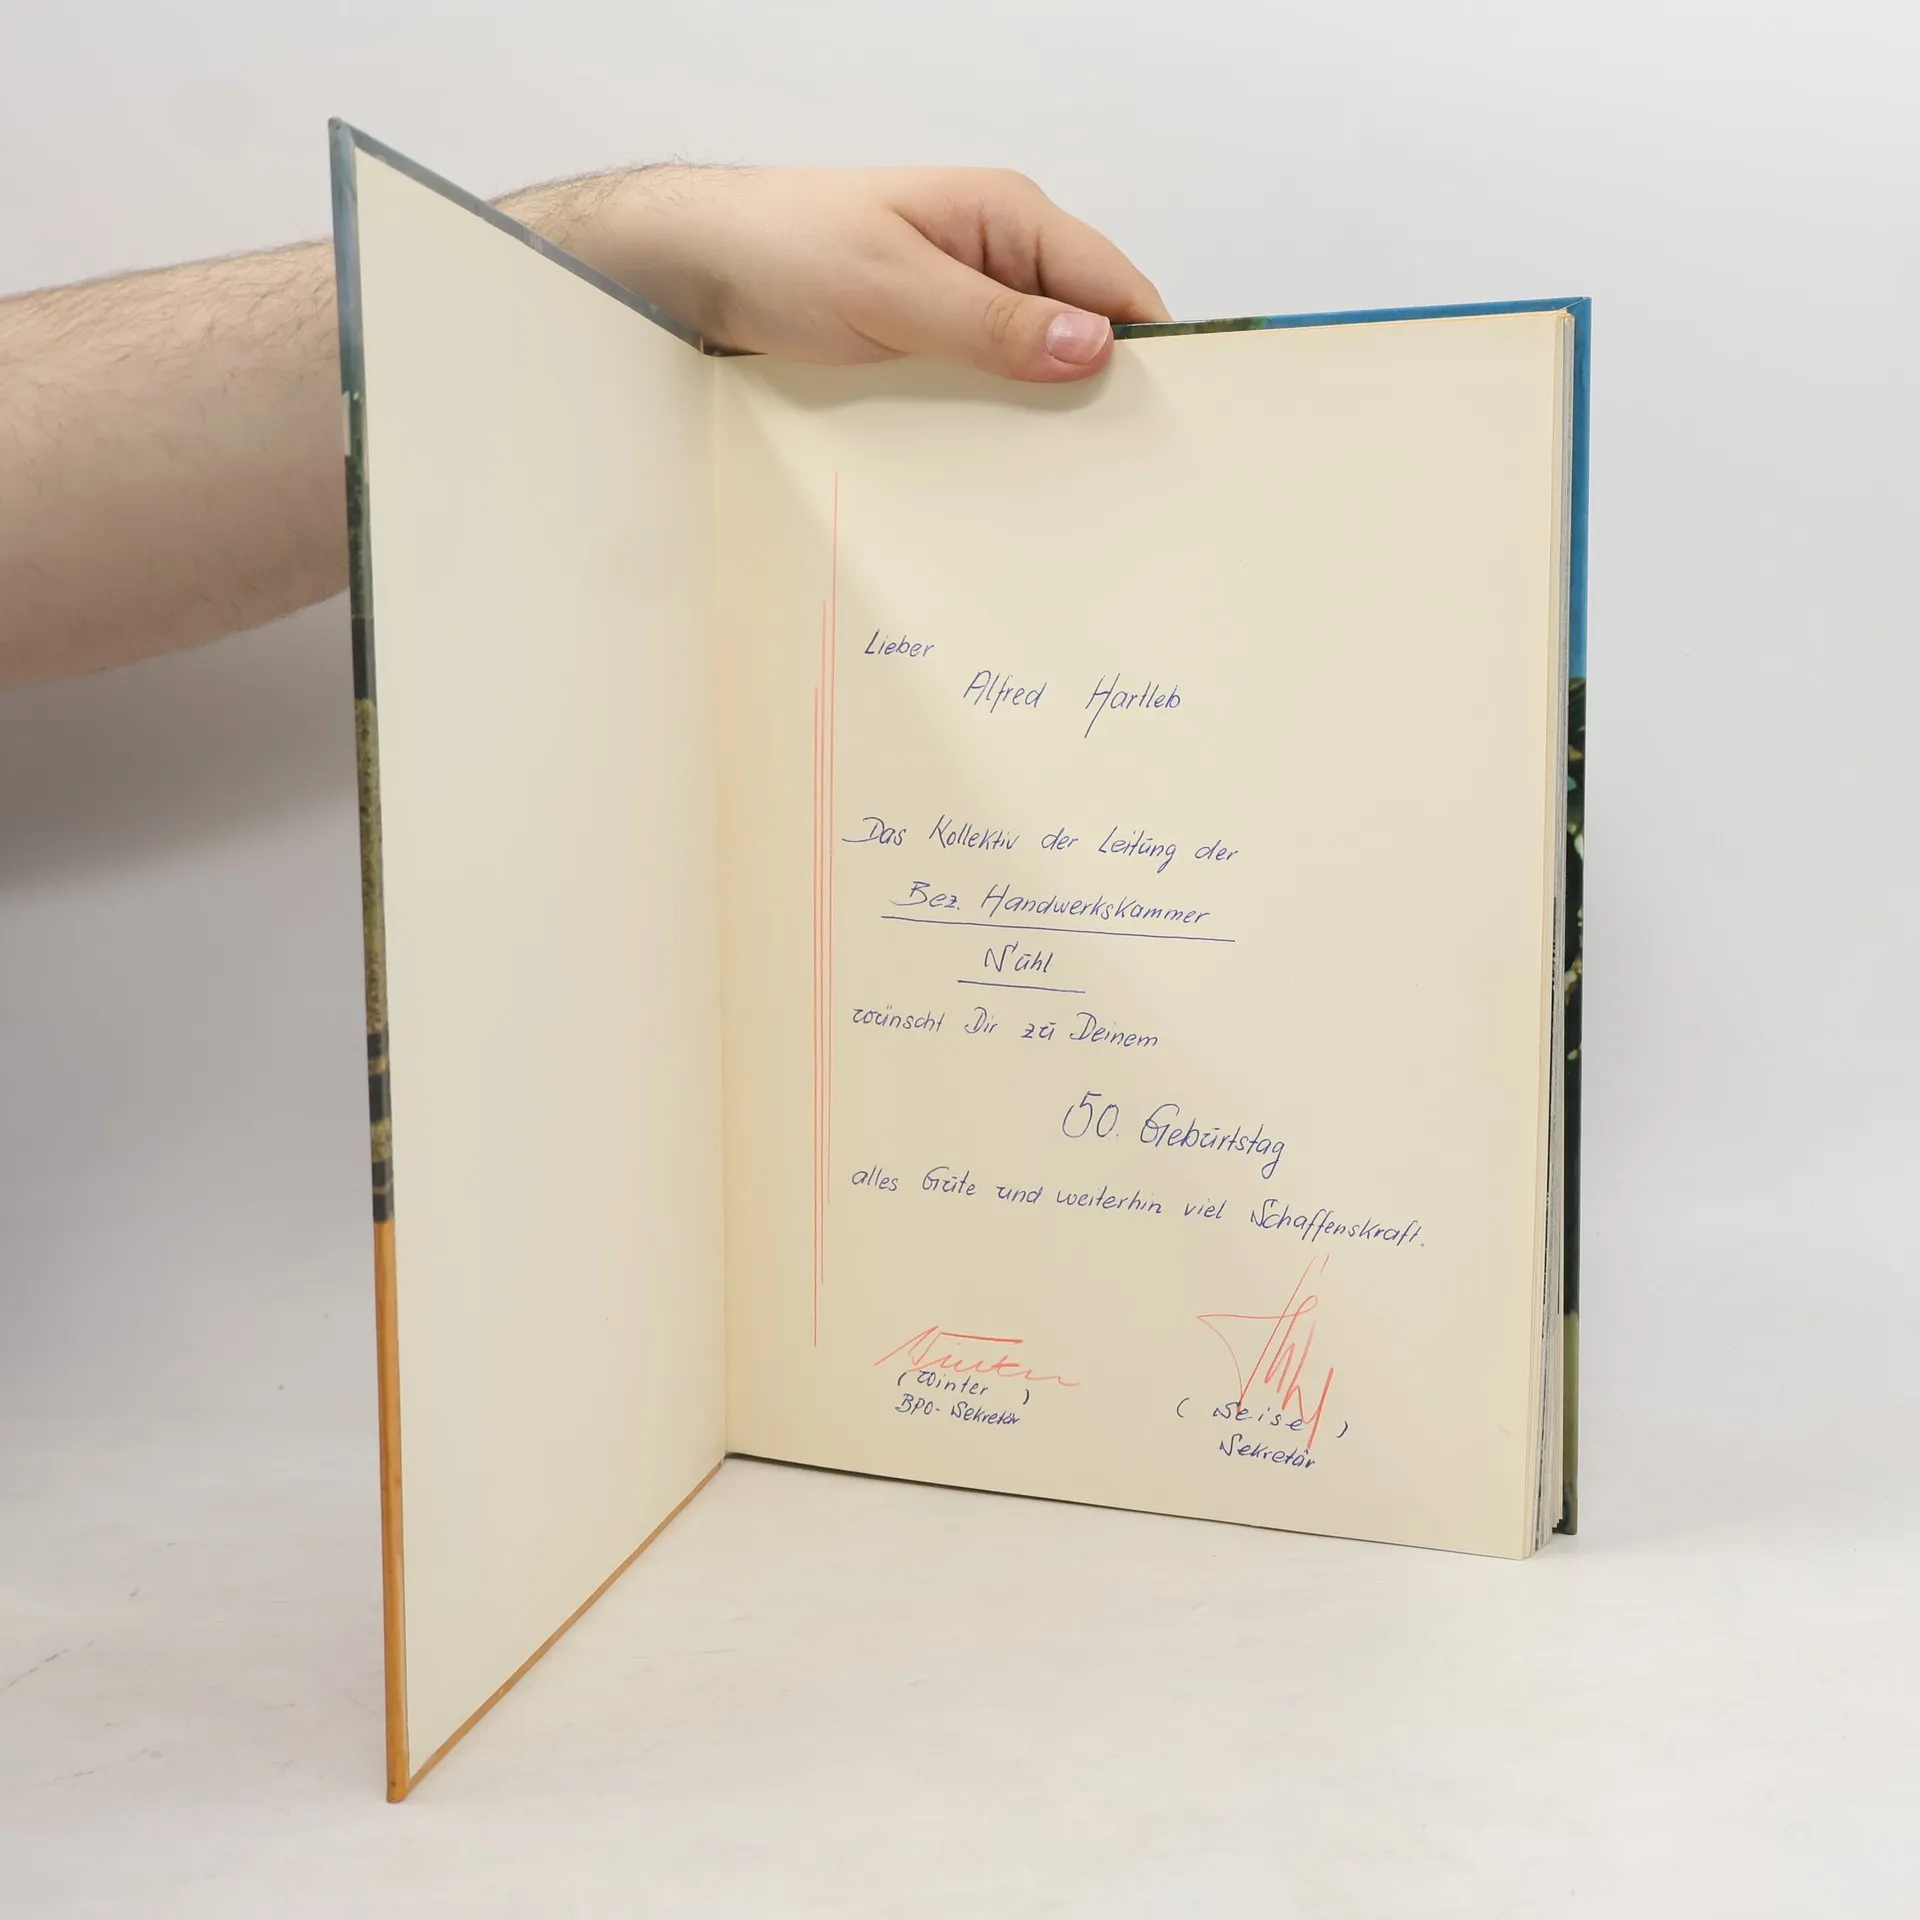 Lieber
Alfred Hartleb
Das Kollektiv der Leitung der
Bez. Handwerkskammer
Suhl
wünscht Dir zu Deinem
50. Geburtstag
alles Gute und weiterhin viel Schaffenskraft.
Winter
(Winter)
BPO-Sekretär
(Seise)
Sekretär